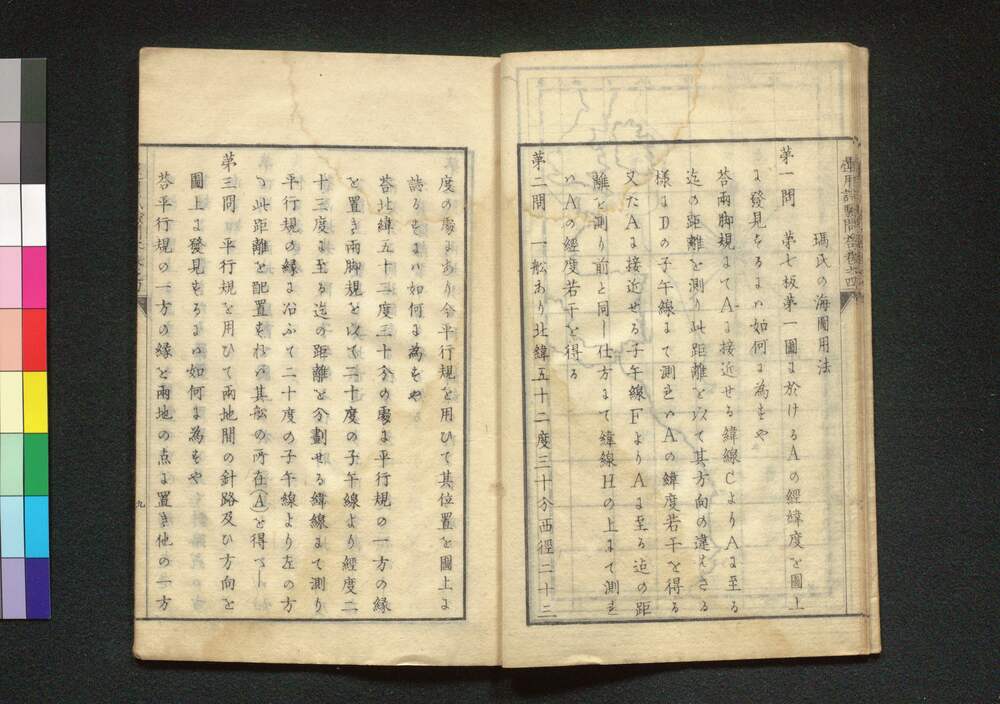 瑪氏の海圖用法
第一問　第七板第一圖に於けるAの經緯度を圖上
に發見するには如何に為すや
答兩脚規にてAに接近せる緯線CよりAに至る
迄の距離を測り此距離を以て其方向の違えさる
樣にDの子午線まて測れはAの緯度若干を得る
又たAに接近せる子午線FよりAに至る迠の距
離を測り前と同し仕方にて緯線Hの上にて測れ
はAの經度若干を得る
第二問　一舩あり北緯五十二度三十分西徑二十三
度の處にあり今平行規を用ひて其位置を圖上に
誌るすには如何に為すや
答北緯五十二度三十分の處に平行規の一方の縁
を置き兩脚規を以て二十度の子午線より經度二
十三度に至る迄の距離を分劃せる緯線にて測り
平行規の縁に沿ふて二十度の子午線より左の方
へ此距離を配置すれは其舩の所在Aを得へし
第三問　平行規を用ひて兩地間の針路及ひ方向を
圖上に發見するには如何に為すや
答平行規の一方の縁を兩地の点に置き他の一方
九